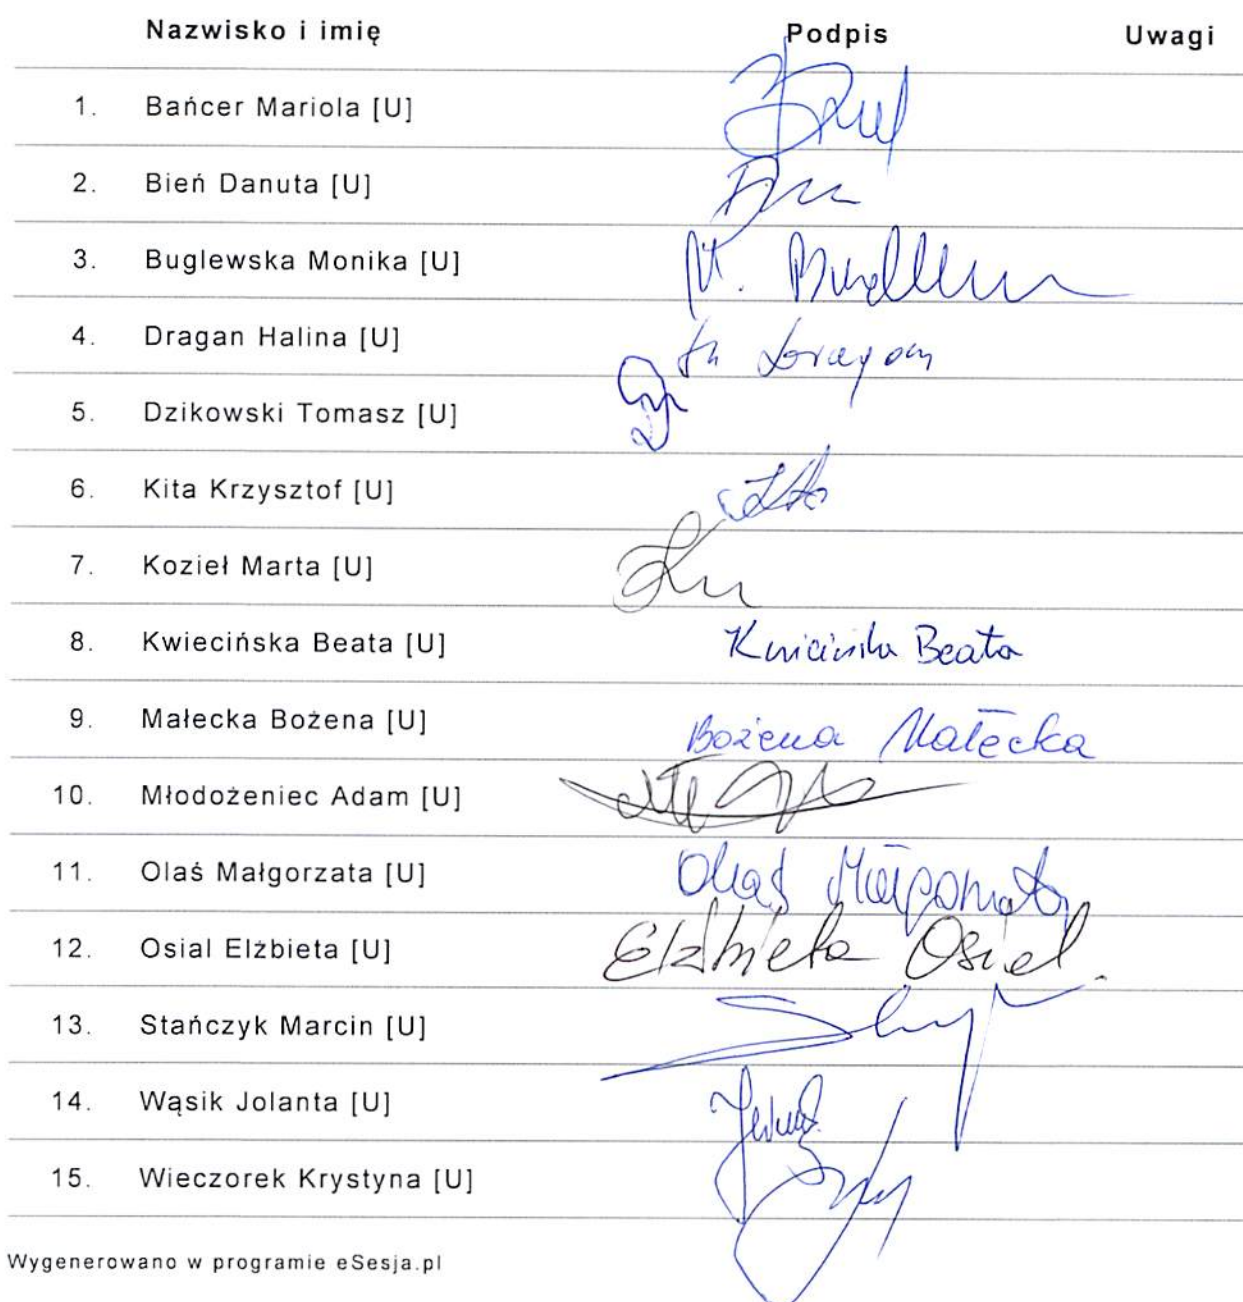 Nazwisko i imię Podpis Uwagi
1. Bańcer Mariola [U]
2. Bień Danuta [U]
3. Buglewska Monika [U] M.
4. Dragan Halina [U] Dragan
5. Dzikowski Tomasz [U]
6. Kita Krzysztof [U]
7. Kozieł Marta [U]
8. Kwiecińska Beata [U] Kwicińska Beata
9. Małecka Bożena [U] Bożena Małecka
10. Młodożeniec Adam [U]
11. Olaś Małgorzata [U] Olaś Małgorzata
12. Osial Elżbieta [U] Elżbieta Osial
13. Stańczyk Marcin [U]
14. Wąsik Jolanta [U]
15. Wieczorek Krystyna [U]
Wygenerowano w programie eSesja.pl